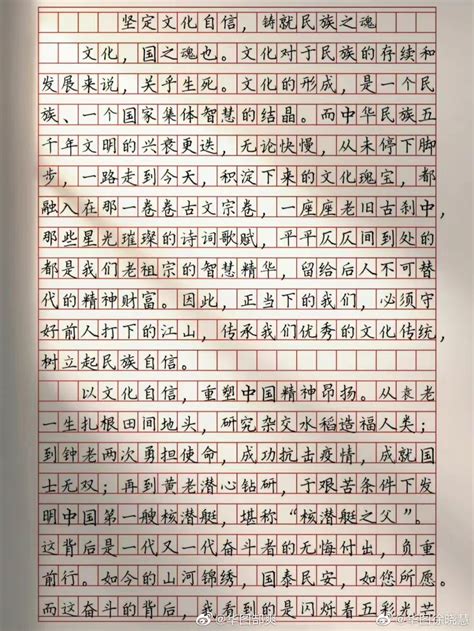 坚定文化自信，铸就民族之魂
文化，国之魂也。文化对于民族的存续和
发展来说，关乎生死。文化的形成，是一个民
族、一个国家集体智慧的结晶。而中华民族五
千年文明的兴衰更迭，无论快慢，从未停下脚
步，一路走到今天，积淀下来的文化瑰宝，都
融入在那一卷卷古文宗卷，一座座老旧古刹中，
那些星光璀璨的诗词歌赋，平平仄仄间到处的
都是我们老祖宗的智慧精华，留给后人不可替
代的精神财富。因此，正当下的我们，必须守
好前人打下的江山，传承我们优秀的文化传统，
树立起民族自信。
以文化自信，重塑中国精神昂扬。从袁老
一生扎根田间地头，研究杂交水稻造福人类；
到钟老两次勇担使命，成功抗击疫情，成就国
士无双；再到黄老潜心钻研，于艰苦条件下发
明中国第一艘核潜艇，堪称“核潜艇之父”。
这背后是一代又一代奋斗者的无悔付出，负重
前行。如今的山河锦绣，国泰民安，如您所愿。
而这奋斗的背后，我看到的是闪烁着五彩光芒